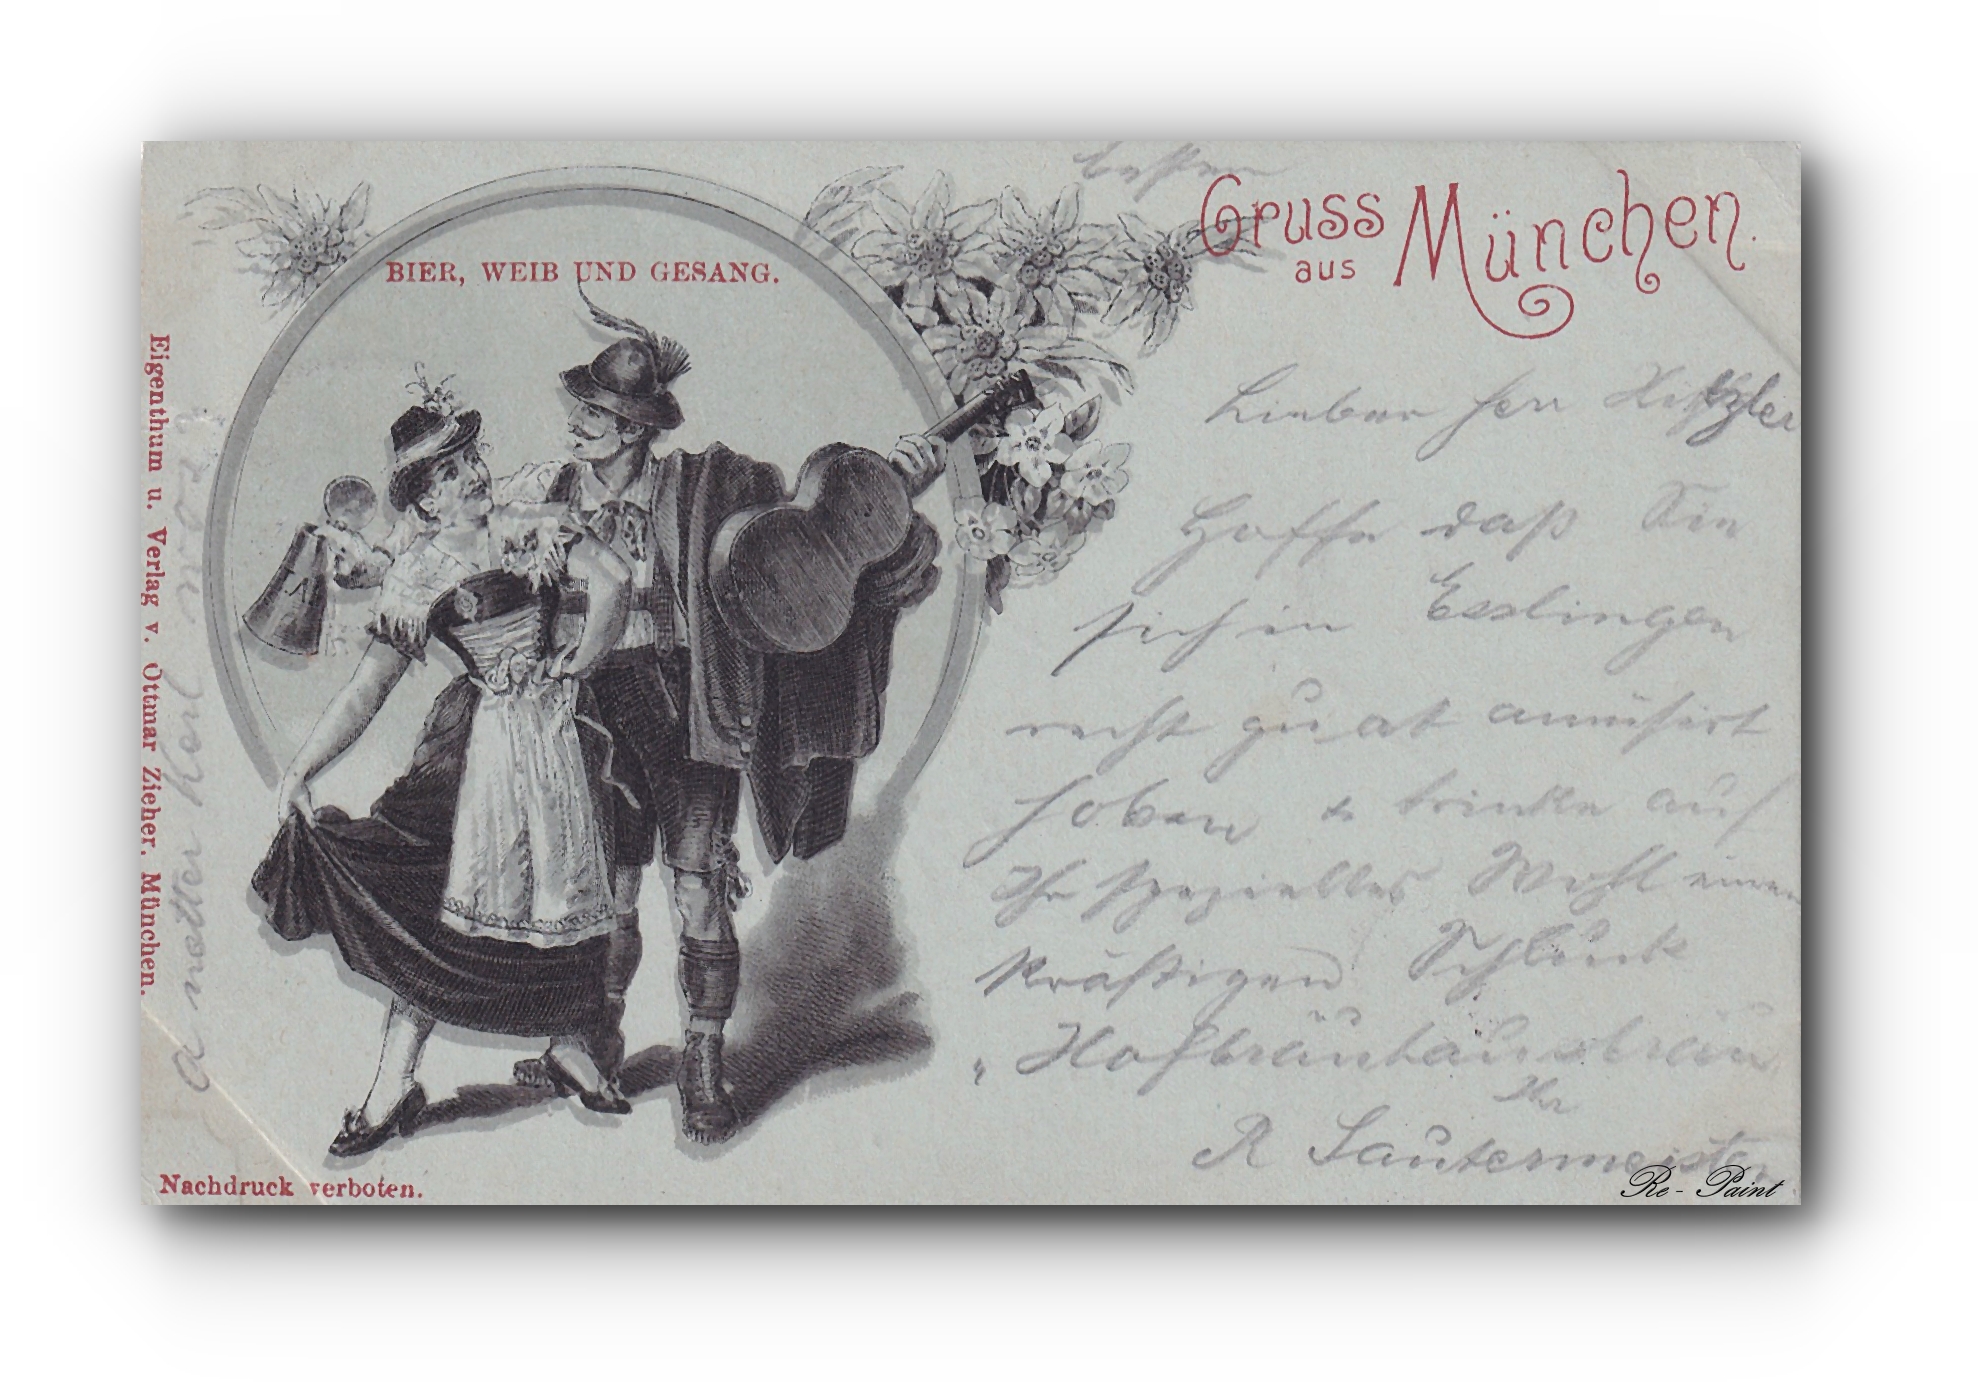 Gruss
aus München.
BIER, WEIB UND GESANG.
Eigenthum u. Verlag v. Ottmar Zieher. München.
Nachdruck verboten.
Lieber Herr
Hoffe daß Sie
sich in Esslingen
recht gut amüsirt
haben & trinke auf
Ihr spezielles Wohl einen
kräftigen Schluck
Hofbräuhausbräu
Ihr
R Lautermeister
Re - Paint